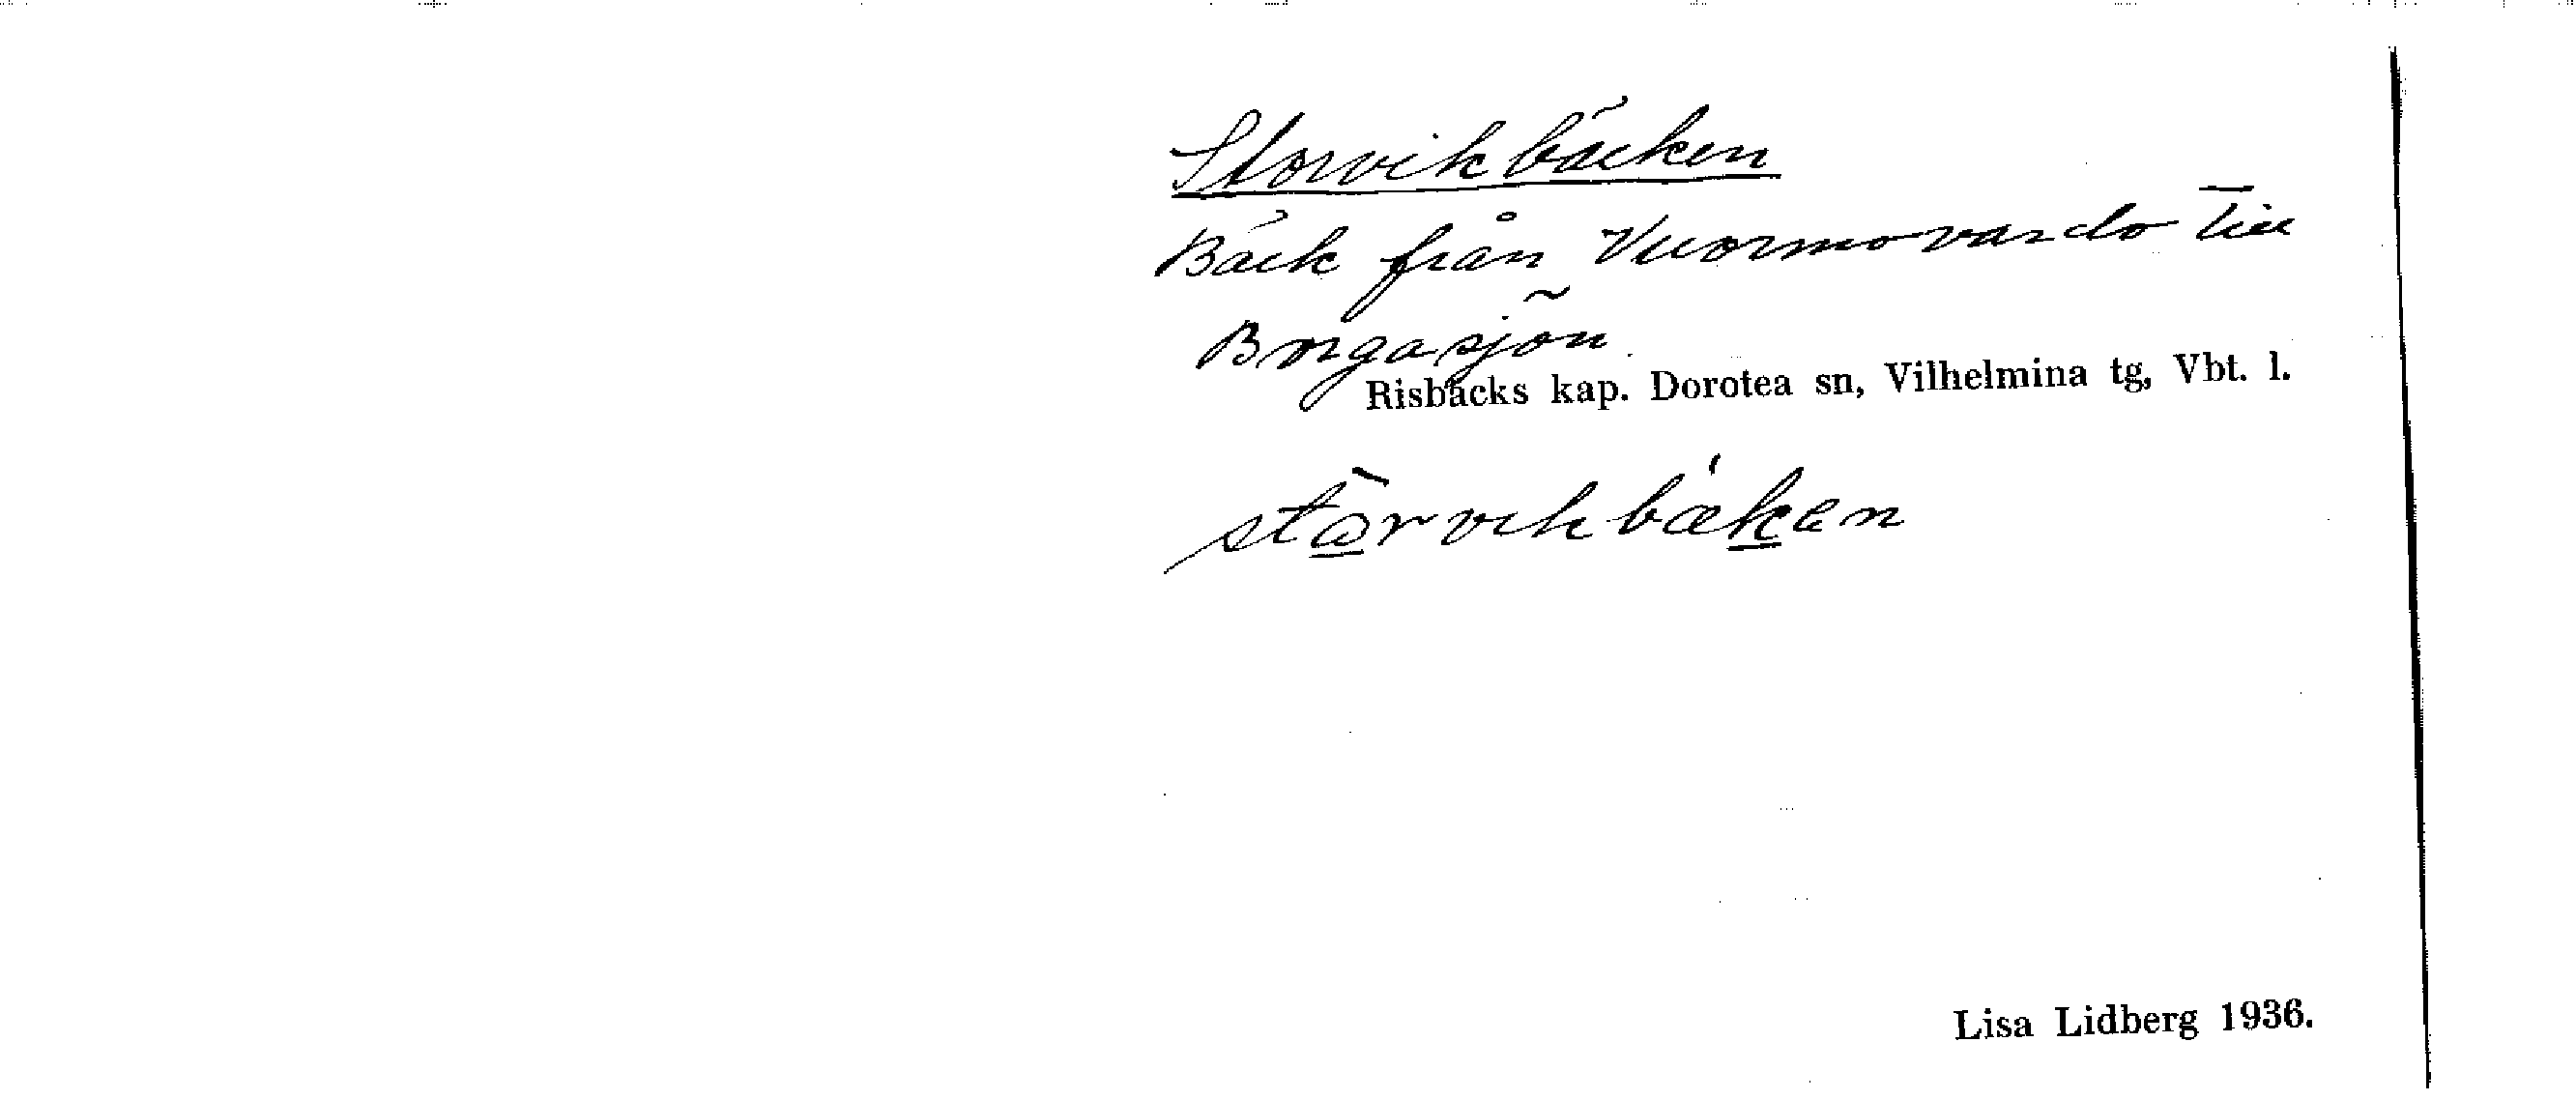 Storvikbäcken
Bäck från Vuormovardo till
Borgasjön.
Risbäcks kap. Dorotea sn, Vilhelmina tg, Vbt. l.
störvikbæken
Lisa Lidberg 1936.